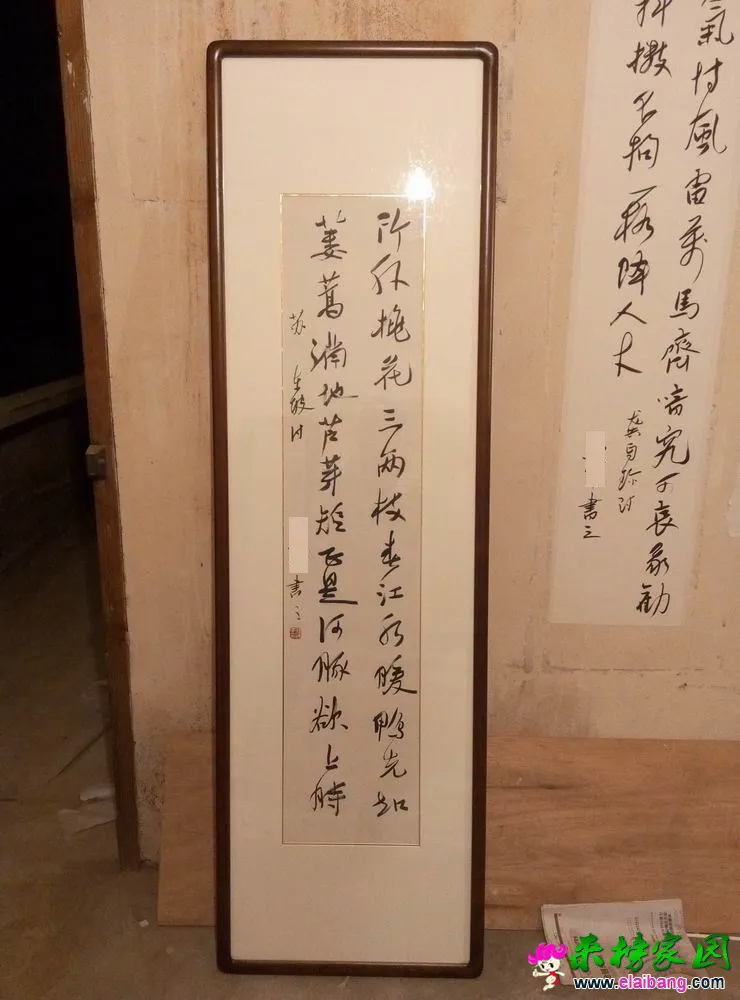 竹外桃花三两枝春江水暖鸭先知
蒌蒿满地芦芽短正是河豚欲上時
苏东坡诗
書之
氣恃風雷萬馬齊喑究可哀我勸
抖擞不拘一格降人才
龚自珍诗
書之
来榜家园
www.elaibang.com